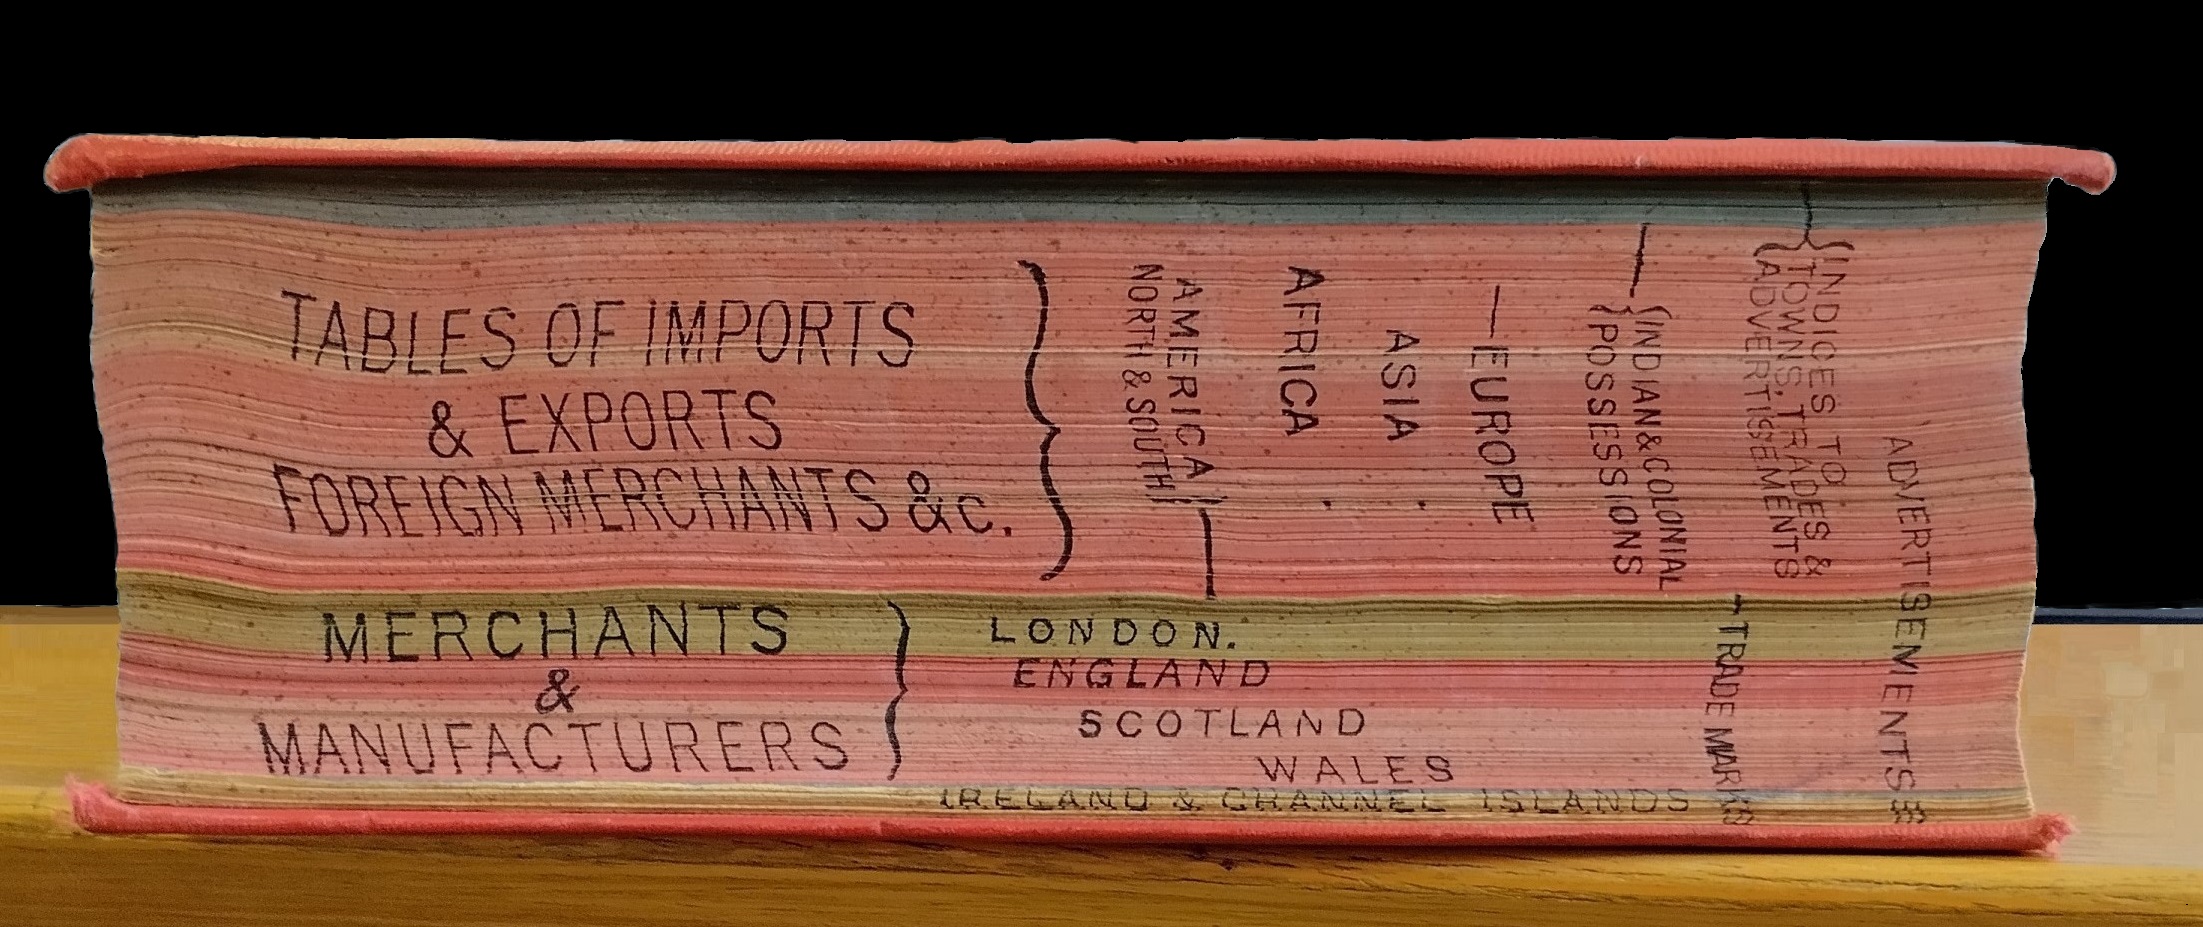 TABLES OF IMPORTS
& EXPORTS
FOREIGN MERCHANTS &c.
AMERICA
NORTH & SOUTH
AFRICA
ASIA
EUROPE
INDIAN & COLONIAL
POSSESSIONS
INDICES TO
TOWNS, TRADES &
ADVERTISEMENTS
MERCHANTS
&
MANUFACTURERS
LONDON.
ENGLAND
SCOTLAND
WALES
IRELAND & CHANNEL ISLANDS
TRADE MARKS
ADVERTISEMENTS